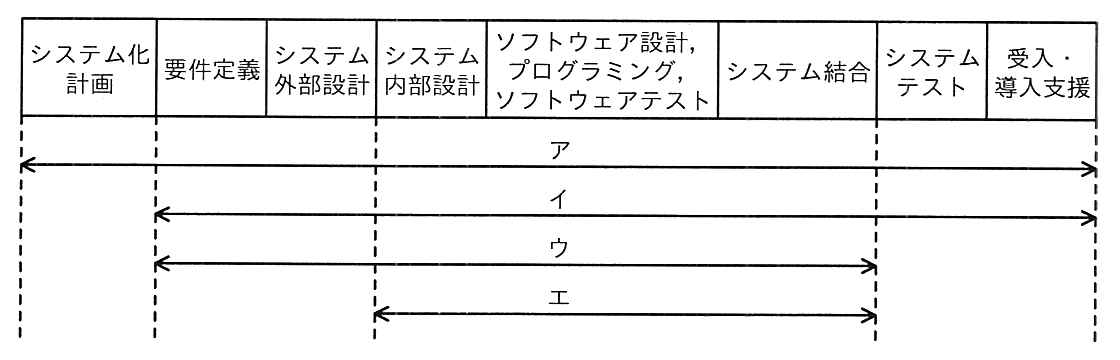 システム化
計画
要件定義
システム
外部設計
システム
内部設計
ソフトウェア設計，
プログラミング，
ソフトウェアテスト
システム結合
システム
テスト
受入・
導入支援
ア
イ
ウ
エ